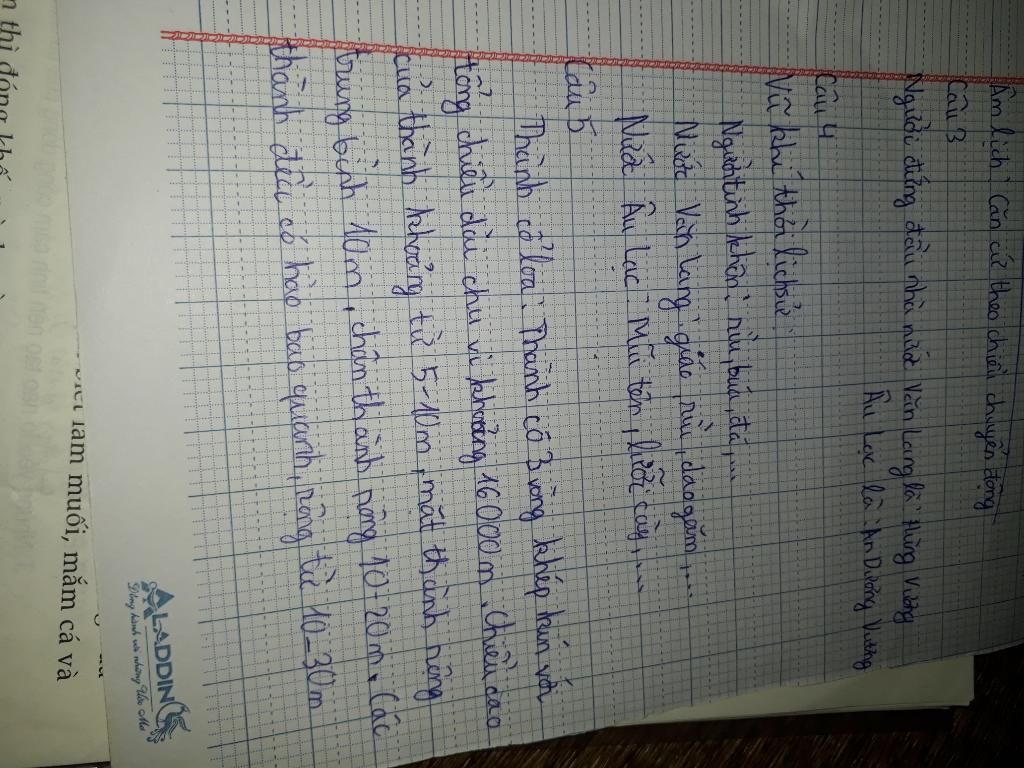 Âm lịch: Căn cứ theo chiều chuyển động
Câu 3
Người đứng đầu nhà nước Văn Lang là Hùng Vương
Âu Lạc là An Dương Vương
Câu 4
Vũ khí thời lịch sử:
Người tinh khôn: rìu, búa, đá,...
Nước Văn Lang: giáo, rìu, dao găm,...
Nước Âu Lạc: Mũi tên, lưỡi cày,...
Câu 5
Thành cổ loa: Thành có 3 vòng khép kín với
tổng chiều dài chu vi khoảng 16000m. Chiều cao
của thành khoảng từ 5-10m, mặt thành rộng
trung bình 10m, chân thành rộng 10-20m. Các
thành đều có hào bao quanh, rộng từ 10-30m
ALADDIN
làm muối, mắm cá và
thì đóng